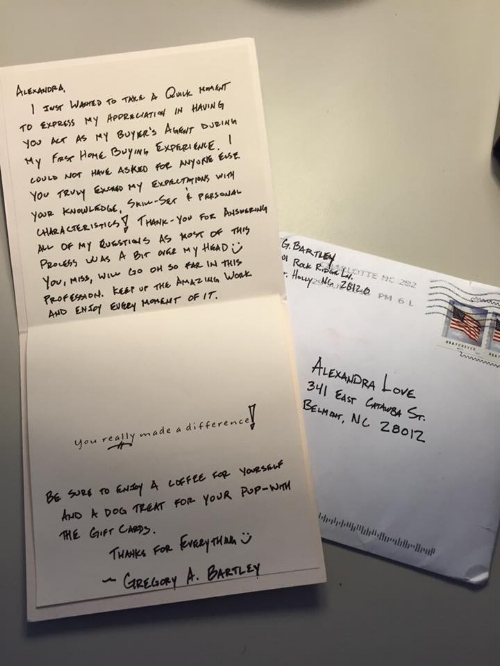 ALEXANDRA,
I JUST WANTED TO TAKE A QUICK MOMENT
TO EXPRESS MY APPRECIATION IN HAVING
YOU ACT AS MY BUYER'S AGENT DURING
MY FIRST HOME BUYING EXPERIENCE. I
COULD NOT HAVE ASKED FOR ANYONE ELSE.
YOU TRULY EXCEED MY EXPECTATIONS WITH
YOUR KNOWLEDGE, SKILL-SET & PERSONAL
CHARACTERISTICS! THANK-YOU FOR ANSWERING
ALL OF MY QUESTIONS AS MOST OF THIS
PROCESS WAS A BIT OVER MY HEAD :)
YOU, MISS, WILL GO OH SO FAR IN THIS
PROFESSION. KEEP UP THE AMAZING WORK
AND ENJOY EVERY MOMENT OF IT.
you really made a difference!
BE SURE TO ENJOY A COFFEE FOR YOURSELF
AND A DOG TREAT FOR YOUR PUP-WITH
THE GIFT CARDS.
THANKS FOR EVERYTHING :)
~ GREGORY A. BARTLEY
G. BARTLEY
ROCK RIDGE LN.
HOLLY, NC 28120
NC 282
PM 6 L
ALEXANDRA LOVE
341 EAST CATAWBA ST.
BELMONT, NC 28012